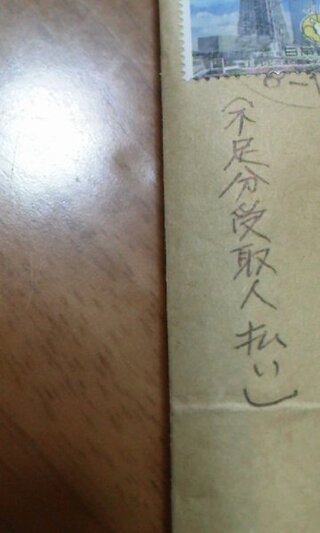 (不足分受取人払い)